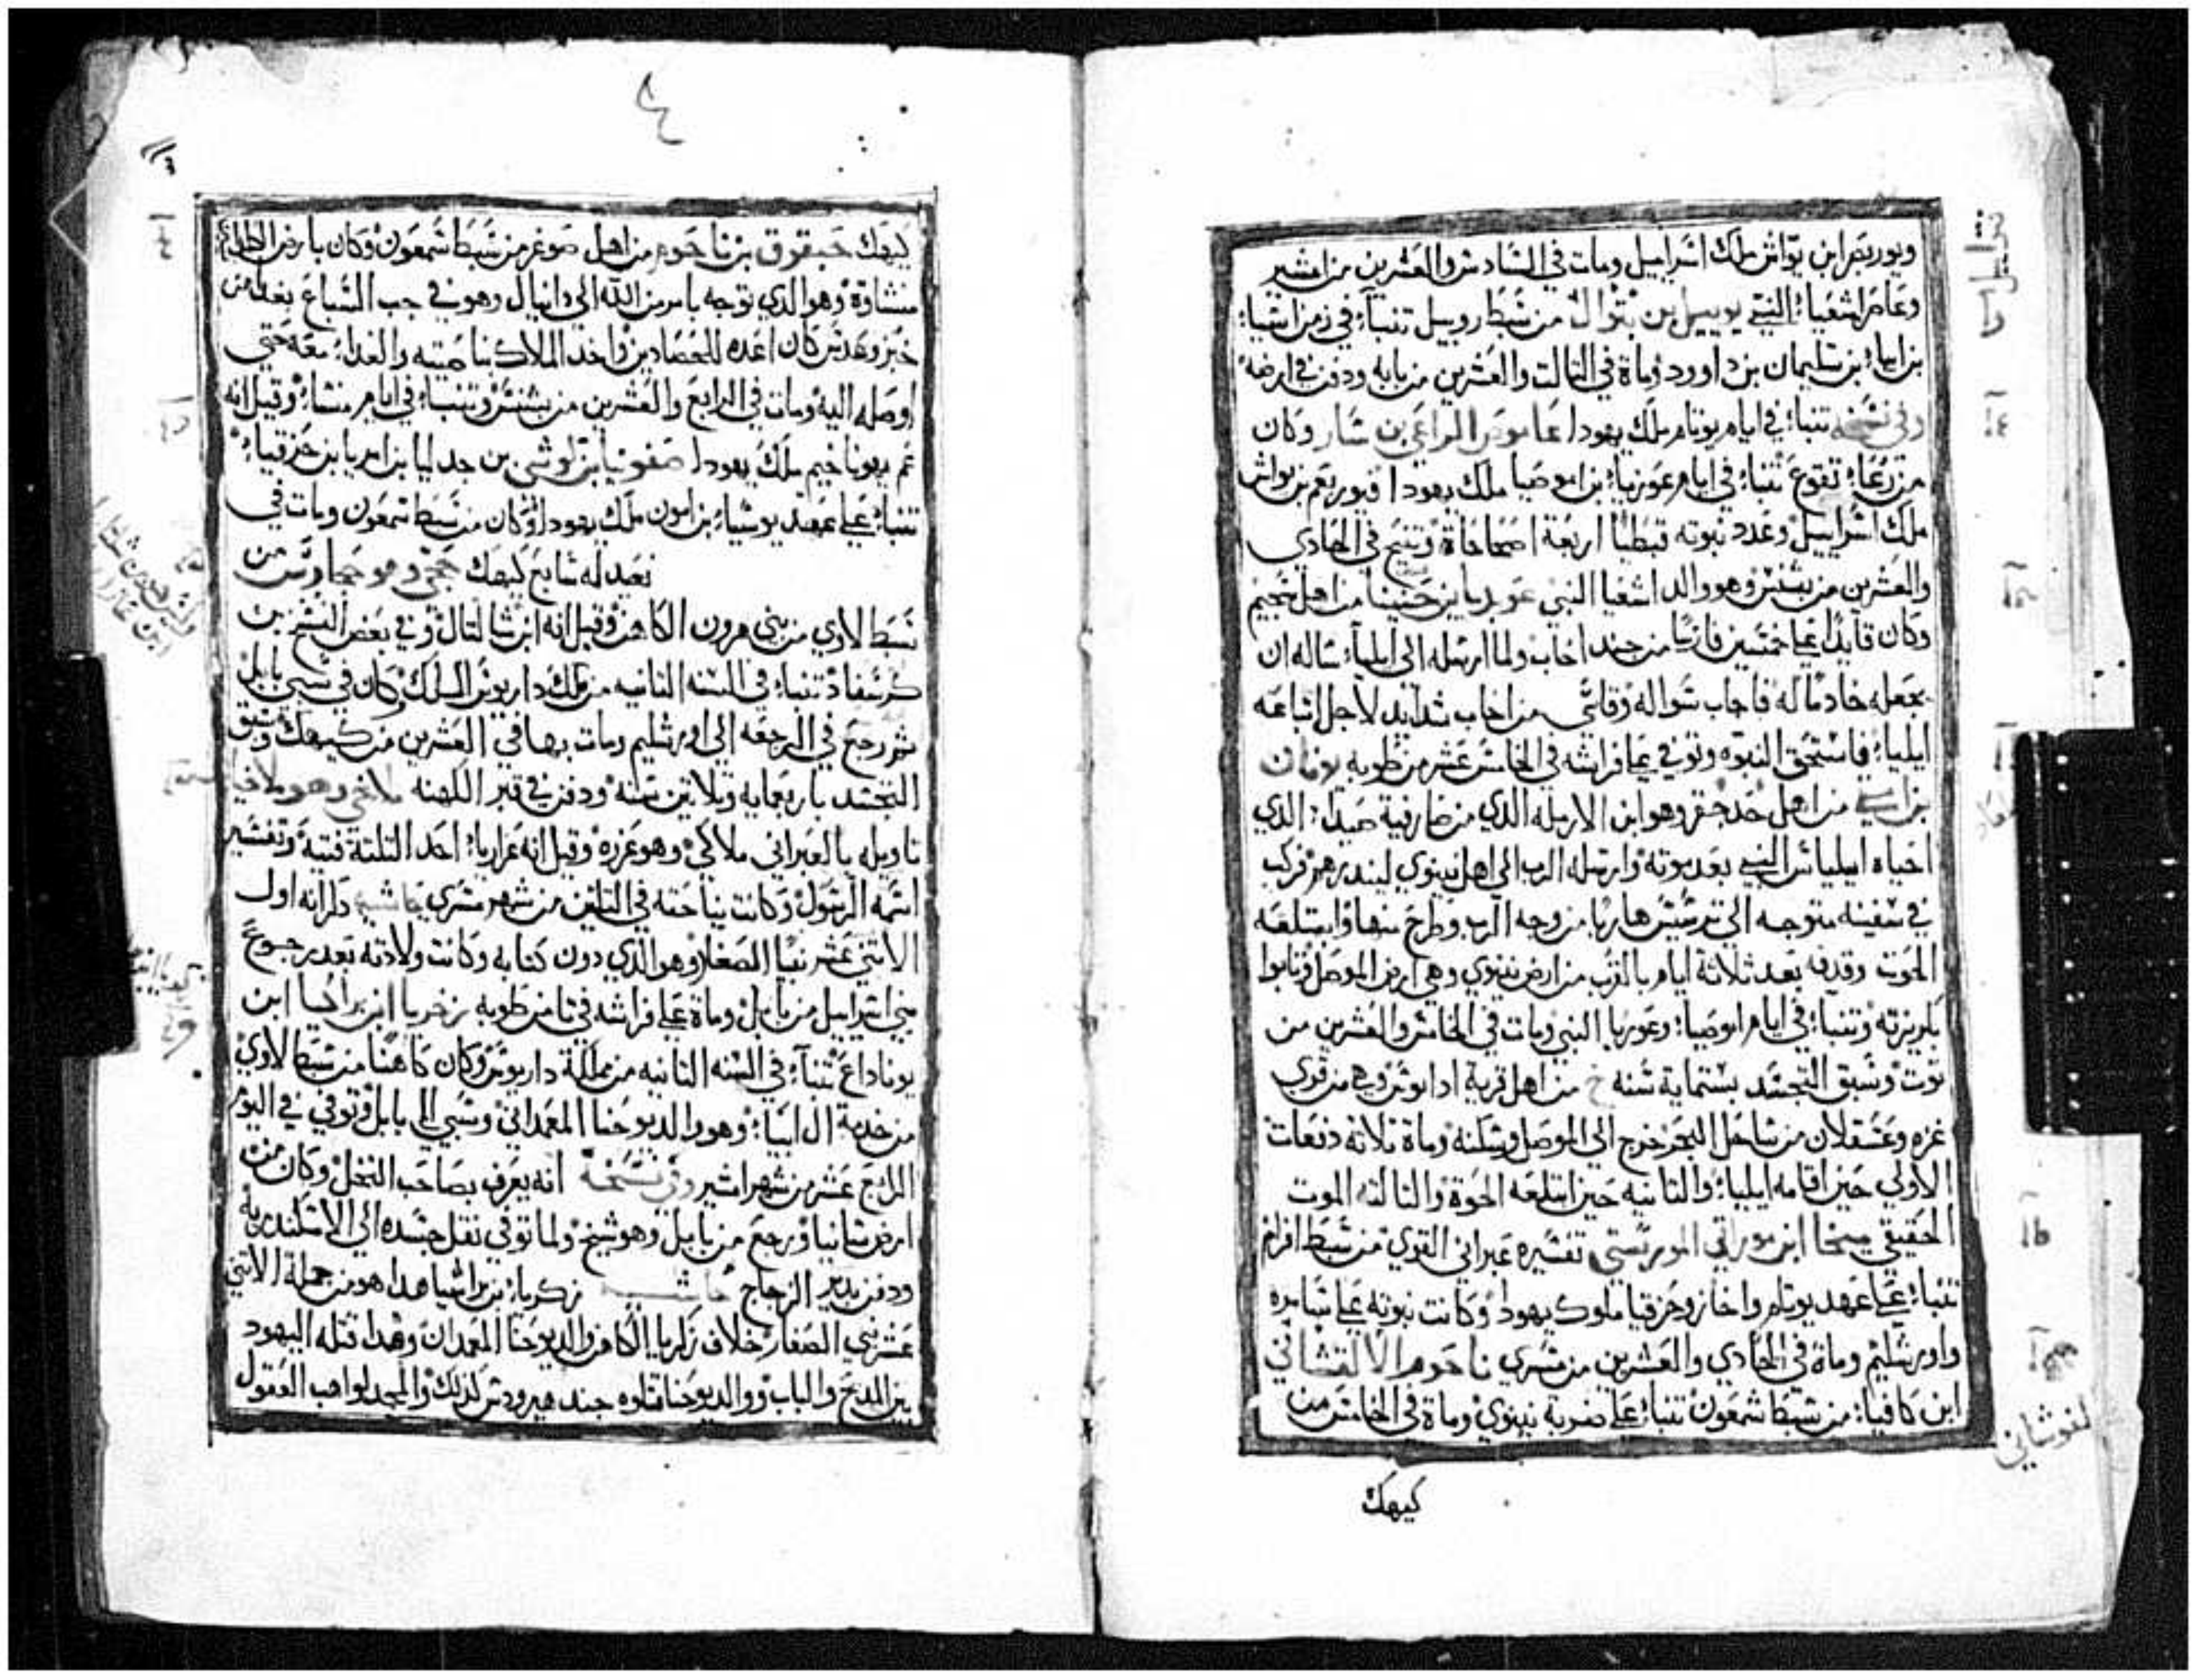 ويوربعم ابن يواش ملك اسراييل ومات في السادس والعشرين من امشير
وعاصر اشعياء النبي يوييل بن بتوال من سبط روبيل تنباء في زمن اسا
بن ابيا بن سليمان بن داوود وماة في التالت والعشرين من بابه ودفن في ارضه
وفي نسخه تنباء في ايام يوتام ملك يهودا عاموص الراعي بن سار وكان
من رعاء تقوع تنباء في ايام عوزيا بن اموصيا ملك يهودا ويوربعم بن يواش
ملك اسراييل وعدد نبوته قبطيا اربعة اصحاحاة وتنيح في الحادي
والعشرين من بشنس وهو والد اشعيا النبي عوبديا بن حنينا من اهل
وكان قايدا علي خمسين فارسا من جند اخاب ولما ارسله الي ايلياء ساله ان
يجعله خادما له فاجاب سواله وقاسي من اخاب شدايد لاجل اتباعه
ايلياء فاستحق النبوه وتوفي علي فراشه في الخامس عشر من طوبه يونان
بن امتي من اهل وهو ابن الارمله الذي من صارفية صيدا الذي
احياه ايلياس النبي بعد موته وارسله الرب الي اهل نينوي لينذرهم فركب
في سفينه متوجه الي ترسيس هاربا من وجه الرب وطرح منها وابتلعه
الحوت وقدفه بعد ثلاثة ايام بالقرب من ارض نينوي وهي ارض الموصل وتابوا
بكريزته وتنباء في ايام اموصياء وعوزيا النبي ومات في الخامس والعشرين من
توت وسبق التجسد بستماية سنه خ من اهل قرية وهي من قري
غزه وعسقلان من ساحل البحر خرج الي الموصل وسكنه وماة تلاته دفعات
الاولي حين اقامه ايلياء والتانيه حين ابتلعه الحوة والتالته الموت
الحقيقي ميخا ابن موراتي المورستي تفسيره عبراني القوي من سبط افرام
تنباء علي عهد يوتام واخاز وحزقيا ملوك يهودا وكانت نبوته علي سامره
واورشليم وماة في الحادي والعشرين من مسري ناحوم الالقشاني
ابن كافياء من سبط شمعون تنباء علي ضربة نينوي وماة في الخامس من
كيهك
القوشاني
كيهك حبقوق بن ناحوم من اهل صوغر من سبط شمعون وكان بارض
وهو الذي توجه بامر من الله الي دانيال وهو في جب السباع بغدا من
خبز وعدس كان اعده للحصادين واخد الملاك بناصيته والغداء معه حتي
اوصله اليه ومات في الرابع والعشرين من بشنس وتنباء في ايام منشاء وقيل انه
عم يهوناخيم ملك يهودا صفونيا بن لوشي بن جدليا بن امريا بن حزقياء
تنباء علي عهد يوشياء بن امون ملك يهودا وكان من سبط شمعون ومات في
نعيد له سابع كيهك حجي وهو من
سبط لاوي من بني هرون الكاهن وقيل انه ابن شالتال وفي بعض النسخ بن
تنباء في السنه التانيه من ملك داريوش الملك وكان في سبي بابل
تم رجع في الرجعه الي اورشليم ومات بها في العشرين من كيهك وسبق
التجسد باربعمايه وتلاتين سنه ودفن في قبر الكهنه ملاخي وهو ملاخيا
تاويله بالعبراني ملاكي وهو عزره وقيل انه عزارياء احد التلتة فتية وتفسير
اسمه الرسول وكانت نياحته في التلاتين من شهر مسري حاشيه دكر انه اول
الاتني عشر نبيا الصغار وهو الذي دون كتابه وكانت ولادته بعد رجوع
بني اسراييل من بابل وماة علي فراشه في تامن طوبه زخريا ابن براخيا ابن
يوناداع تنباء في السنه التانيه من مملكة داريوش وكان كاهنا من سبط لاوي
من خدمة ال ابيا وهو والد يوحنا المعمداني وسبي الي بابل وتوفي في اليوم
الرابع عشر من شهر امشير وفي نسخة انه يعرف بصاحب النخل وكان من
ارض ورجع من بابل وهو شيخ ولما توفي نقل جسده الي الاسكندريه
ودفن بدير الزجاج حاشيه زكرياء بن براشيا هدا هو من جملة الاتني
عشر نبي الصغار خلاف زكريا الكاهن والد يوحنا المعمدان وهدا قتله اليهود
بين المدبح والباب ووالد يوحنا قتلوه جند هيرودس لذلك والمجد لواهب العقول